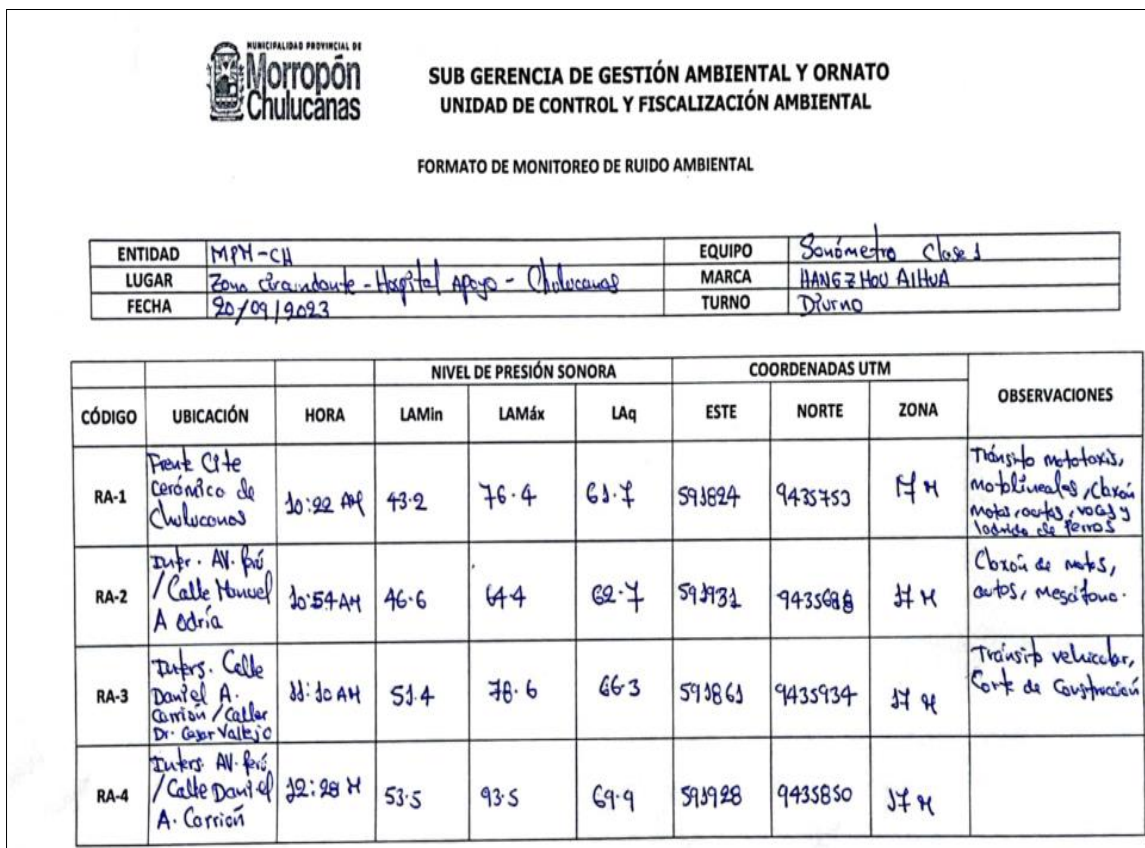 MUNICIPALIDAD PROVINCIAL DE
Morropón
Chulucanas
SUB GERENCIA DE GESTIÓN AMBIENTAL Y ORNATO
UNIDAD DE CONTROL Y FISCALIZACIÓN AMBIENTAL
FORMATO DE MONITOREO DE RUIDO AMBIENTAL
ENTIDAD MPM-CH EQUIPO Sonómetro Clase 1
LUGAR Zona Circundante - Hospital Apoyo - Chulucanas MARCA HANGZHOU AIHUA
FECHA 20/09/2023 TURNO Diurno
NIVEL DE PRESIÓN SONORA COORDENADAS UTM
CÓDIGO UBICACIÓN HORA LAMin LAMáx LAq ESTE NORTE ZONA OBSERVACIONES
Frente Cite
Cerámico de
Chulucanas
RA-1 10:22 AM 43.2 76.4 61.7 591824 9435753 17 M
Tránsito mototaxis,
motolineales, Claxón
motos, autos, voces y
ladrido de perros
Inter. AV. Perú
/ Calle Manuel
A Odría
RA-2 10:54 AM 46.6 64.4 62.7 591931 9435688 17 M
Claxón de motos,
autos, megáfono.
Inters. Calle
Daniel A.
Carrión / Calle
Dr. Cesar Vallejo
RA-3 11:10 AM 51.4 78.6 66.3 591861 9435934 17 M
Tránsito vehicular,
Corte de Construcción
Inters. AV. Perú
/ Calle Daniel
A. Carrión
RA-4 12:28 M 53.5 93.5 69.9 591928 9435850 17 M